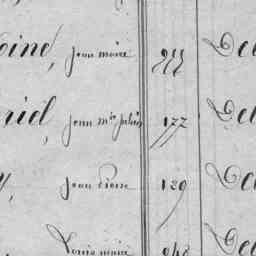 oine, jean marie 255 De
riel, jean mie julien 177 De
y, jean Pierre 129 De
Louis marie 248 De